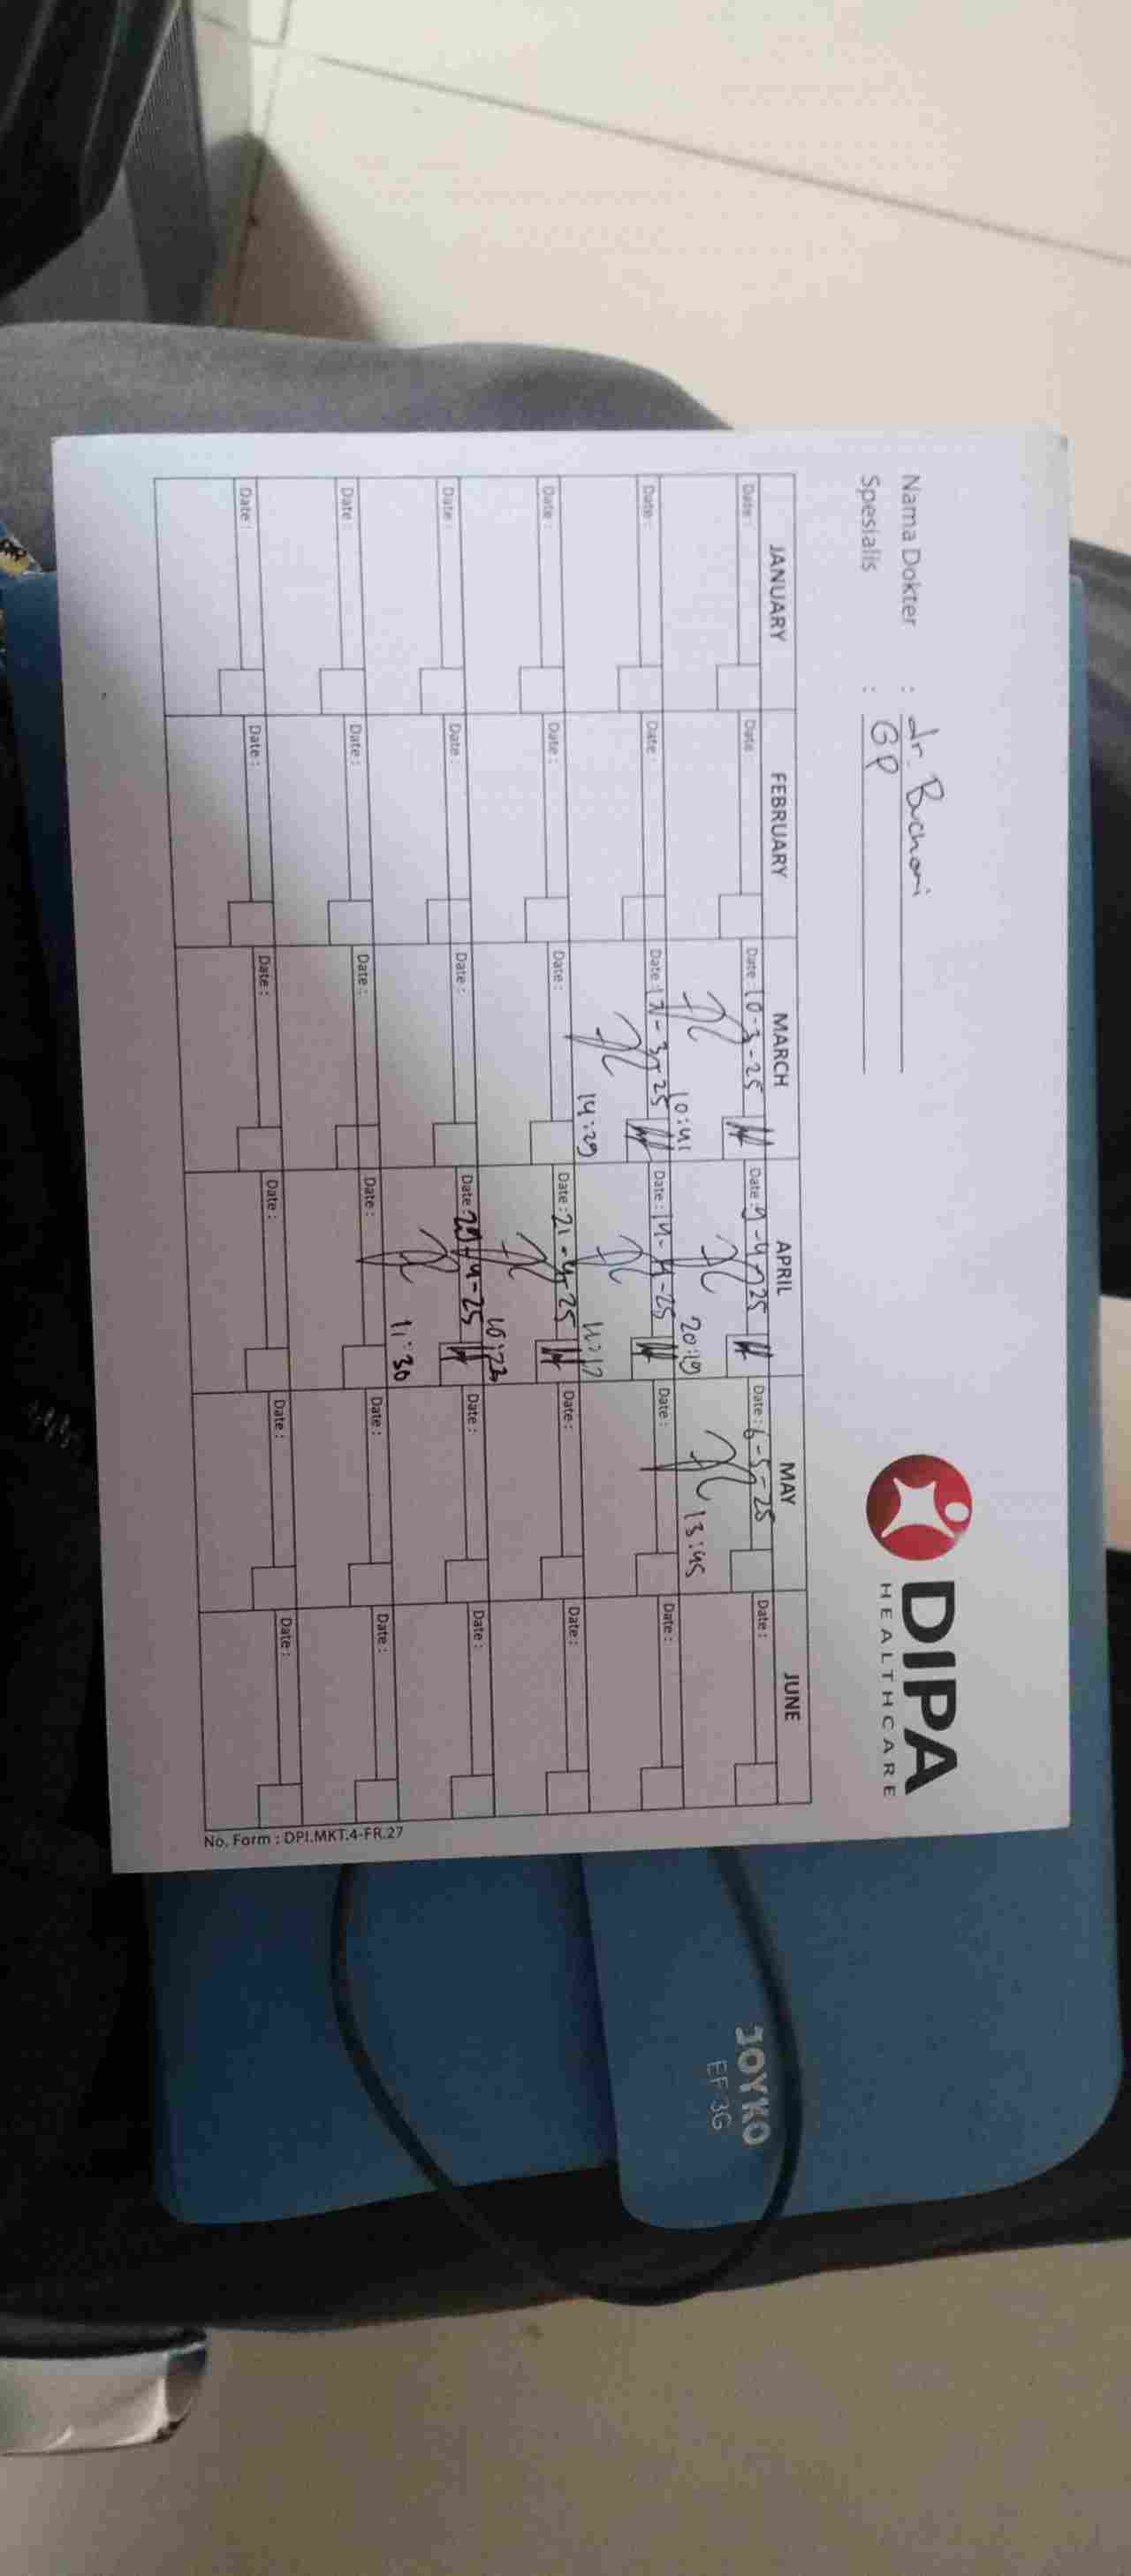 Nama Dokter : dr. Buchori
Spesialis : GP
DIPA
HEALTHCARE
JANUARY FEBRUARY MARCH APRIL MAY JUNE
Date: Date: Date: 10-3-25 Date: 9-4-25 Date: 6-5-25 Date:
10:41 20:19 13:45
Date: Date: Date: -3-25 Date: 14-4-25 Date: Date:
14:29
Date: Date: Date: Date: 21-4-25 Date: Date:
Date: Date: Date: Date: 29-4-25 Date: Date:
11:30
Date: Date: Date: Date: Date: Date:
Date: Date: Date: Date: Date: Date:
No. Form : DPI.MKT.4-FR.27
JOYKO
EF 3G